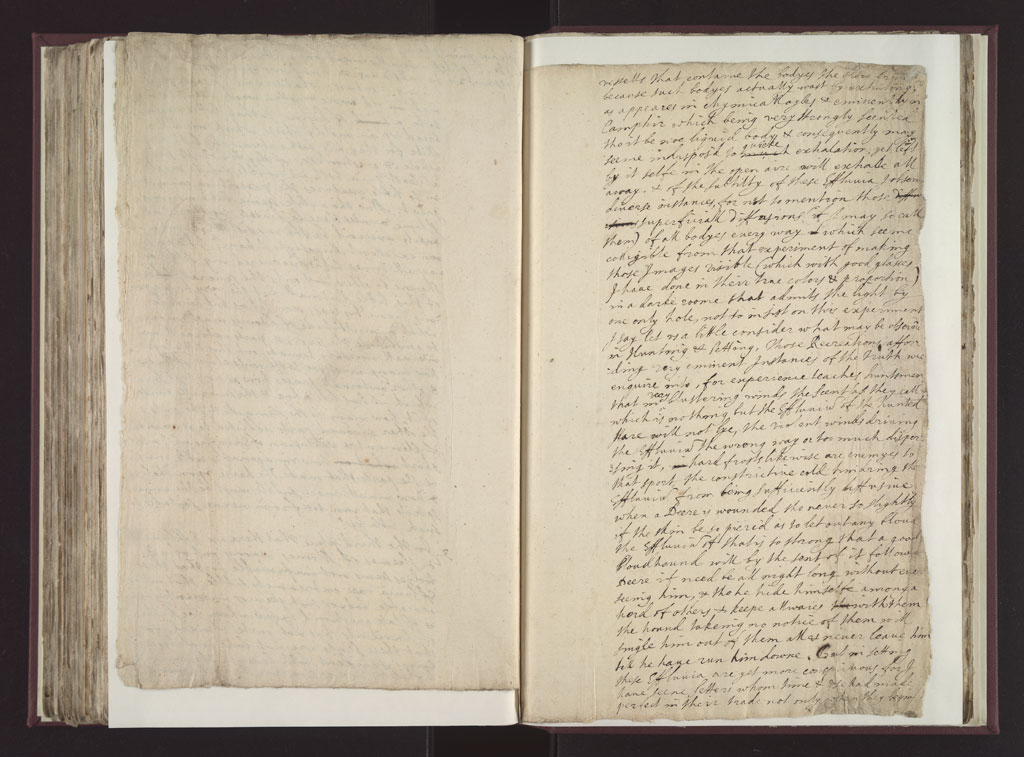 vessells that containe the bodyes the flow from
because such bodyes actually wast by exhaling,
as appeares in chymicall oyles & eminently in
Camphir which being very strongly scented
tho it be noe liquid body & consequently may
seeme indispos'd to quicke exhalation, yet left
by it selfe in the open aire will exhale all
away. & of the subtilty of these Effluvia I observe
diverse instances, for not to mention those
superficiall diffusions (if I may so call
them) of all bodyes every way which seeme
colligible from that experiment of making
those Images visible (which with good glasses
I have done in their true colors & proportion)
in a darke roome that admits the light by
one only hole, not to insist on this experiment
I say let us a little consider what may be observ'd
in Hunting & setting, Those Recreations affor
ding very eminent Instances of the Truth we
enquire into, for experience teaches huntsmen
that in very blustering winds the scent as they call it
which is nothing but the Effluvia of the hunted
Hare will not lye, the violent winds driving
the Effluvia the wrong way or too much disper
sing it, hard frosts likewise are enemyes to
that sport, the constrictive cold hindring the
Effluvia from being sufficiently diffusive
when a Deere is wounded tho never so slightly
if the skin be so pierc'd as to let out any bloud
the Effluvia of that is so strong that a good
bloudhound will by the sent of it follow a
Deere if need be all night long without ever
seeing him, & tho he hide himselfe among a
herd of others, & keepe allwaies with them
the hound takeing no notice of them will
single him out of them all & never leave him
till he have run him downe. But in setting
these Effluvia are yet more conspicuous for I
have seene setters whom time & use had made
perfect in their trade not only when they